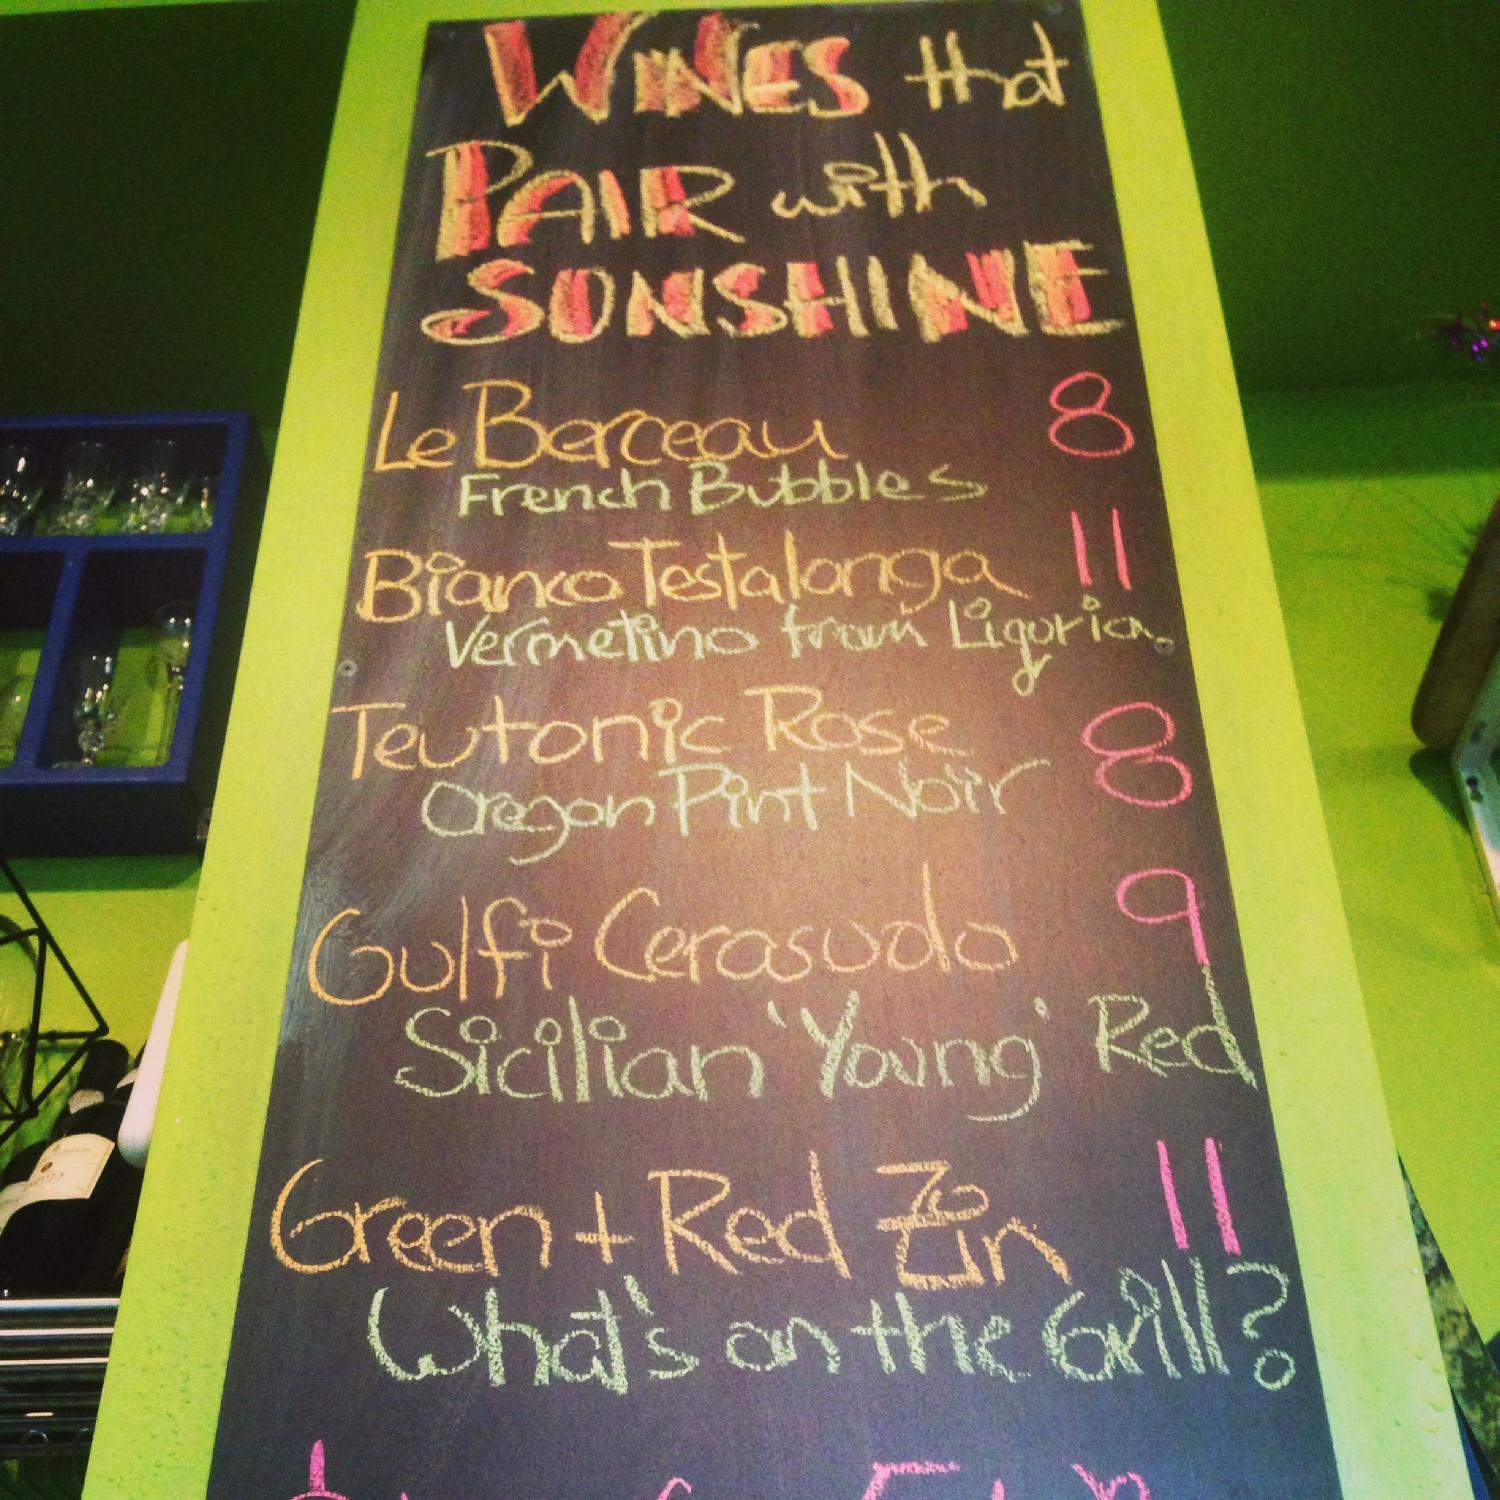 WINES that
PAIR with
SUNSHINE
Le Berceau 8
French Bubbles
Bianco Testalonga 11
Vermetino from Liguria.
Teutonic Rose 8
Oregon Pint Noir
Gulfi Cerasudo 9
Sicilian 'Young' Red
Green + Red Zin 11
What's on the Grill?